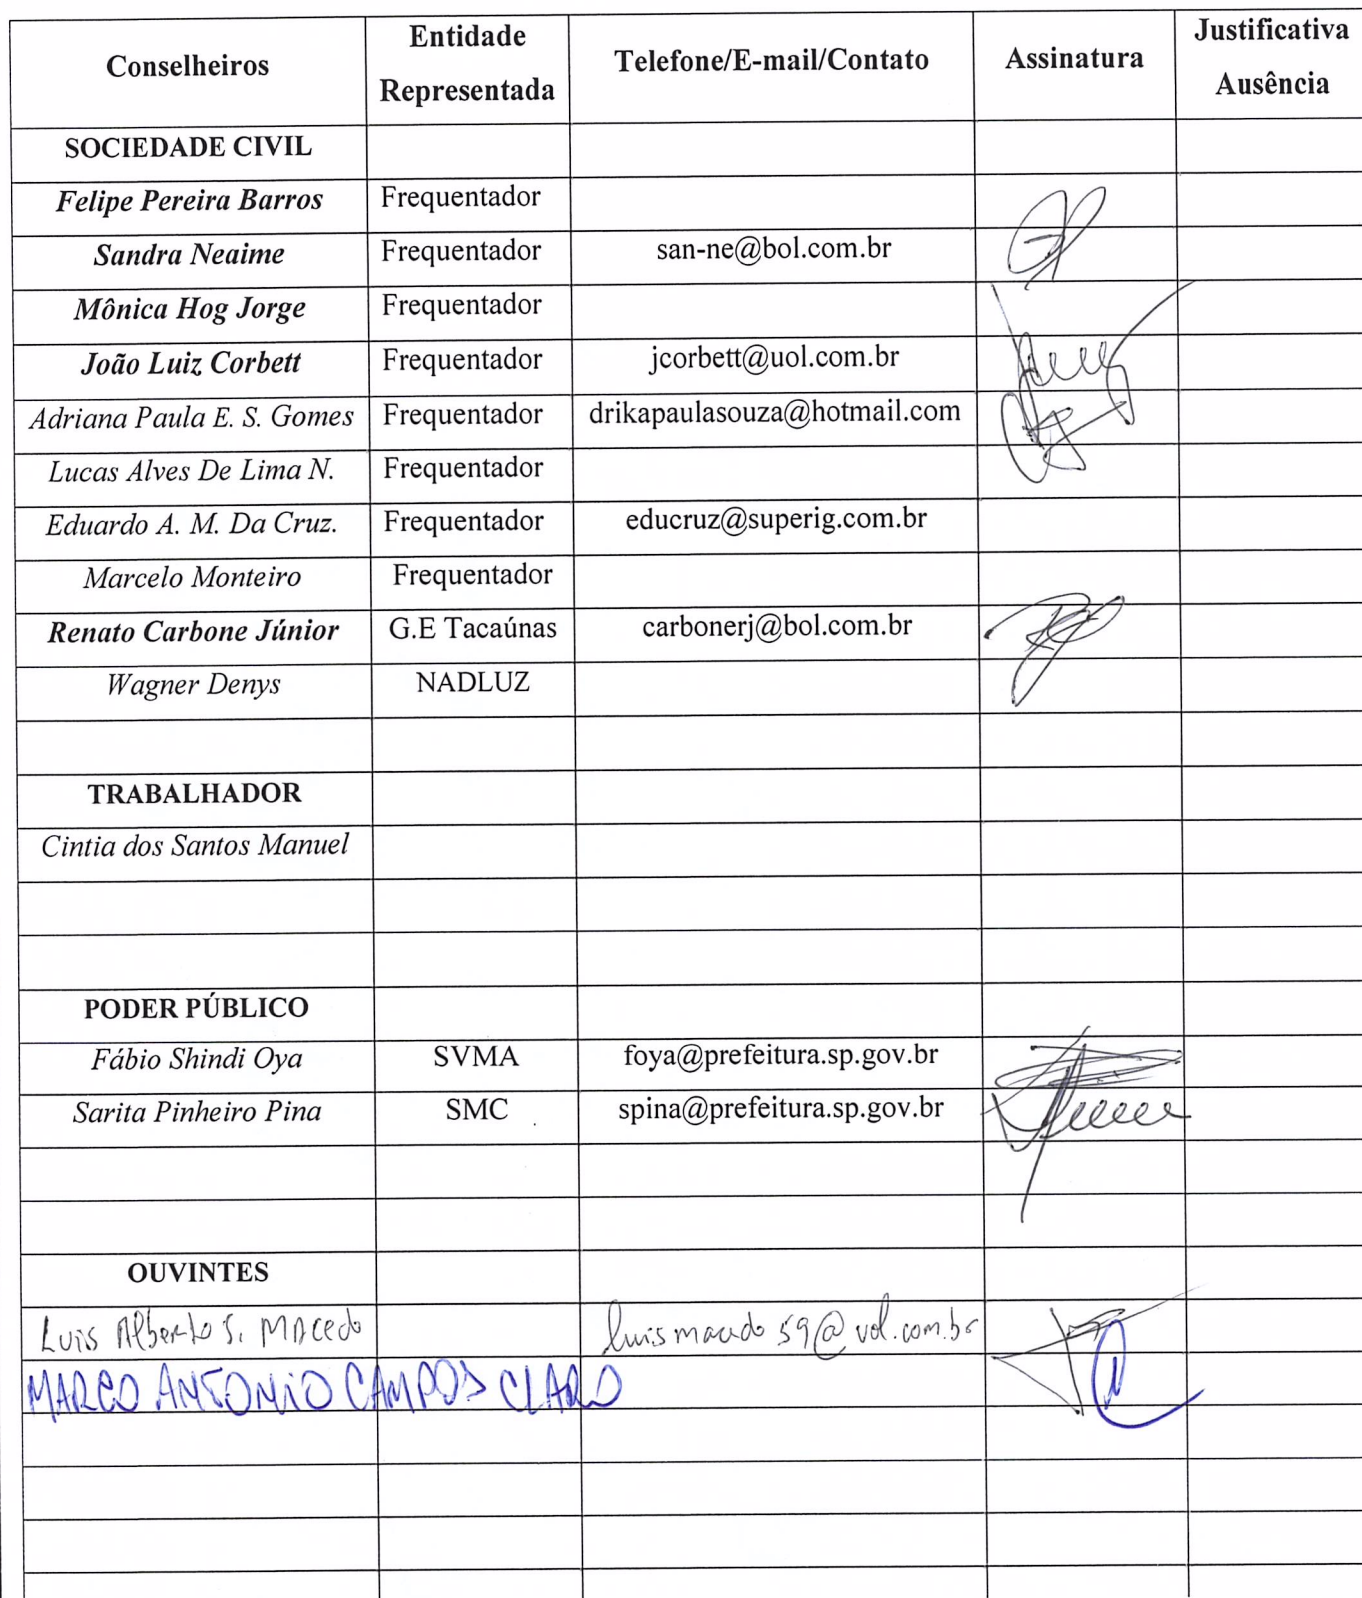 Conselheiros Entidade Representada Telefone/E-mail/Contato Assinatura Justificativa Ausência
SOCIEDADE CIVIL
Felipe Pereira Barros Frequentador
Sandra Neaime Frequentador san-ne@bol.com.br
Mônica Hog Jorge Frequentador
João Luiz Corbett Frequentador jcorbett@uol.com.br
Adriana Paula E. S. Gomes Frequentador drikapaulasouza@hotmail.com
Lucas Alves De Lima N. Frequentador
Eduardo A. M. Da Cruz. Frequentador educruz@superig.com.br
Marcelo Monteiro Frequentador
Renato Carbone Júnior G.E Tacaúnas carbonerj@bol.com.br
Wagner Denys NADLUZ
TRABALHADOR
Cintia dos Santos Manuel
PODER PÚBLICO
Fábio Shindi Oya SVMA foya@prefeitura.sp.gov.br
Sarita Pinheiro Pina SMC spina@prefeitura.sp.gov.br
OUVINTES
Luis Alberto S. Macedo luismacedo59@uol.com.br
MARCO ANTONIO CAMPOS CLARO